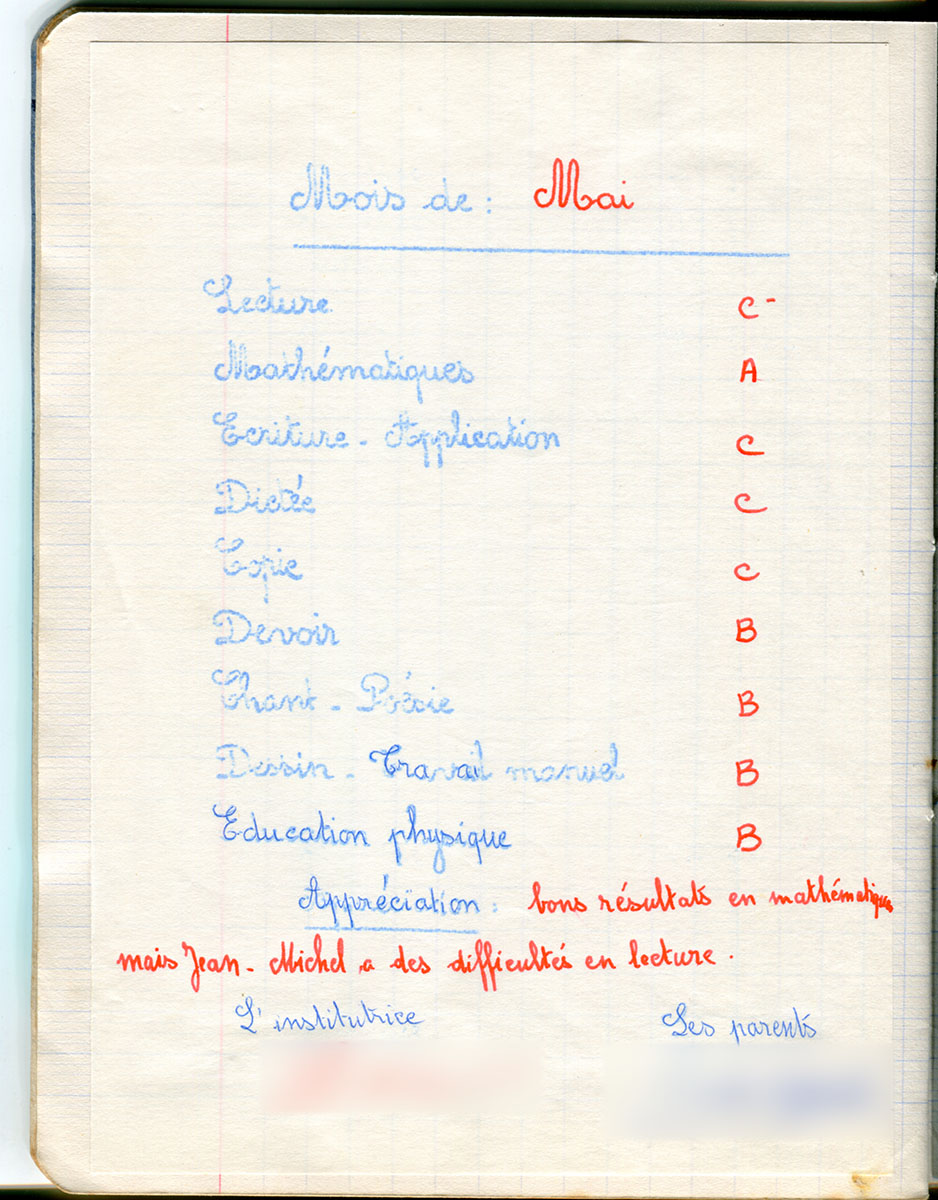 Mois de : Mai
Lecture C-
Mathématiques A
Ecriture - Application C
Dictée C
Copie C
Devoir B
Chant - Poésie B
Dessin - Travail manuel B
Education physique B
Appréciation : bons résultats en mathématiques
mais Jean-Michel a des difficultés en lecture.
L'institutrice Les parents